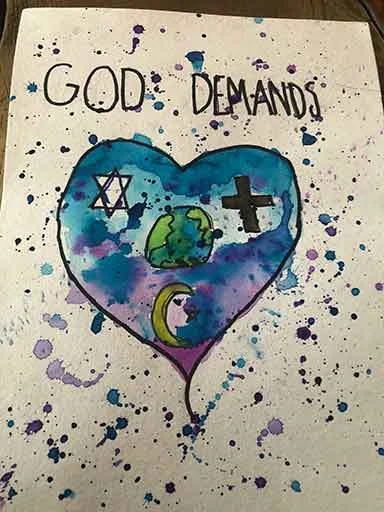 GOD DEMANDS